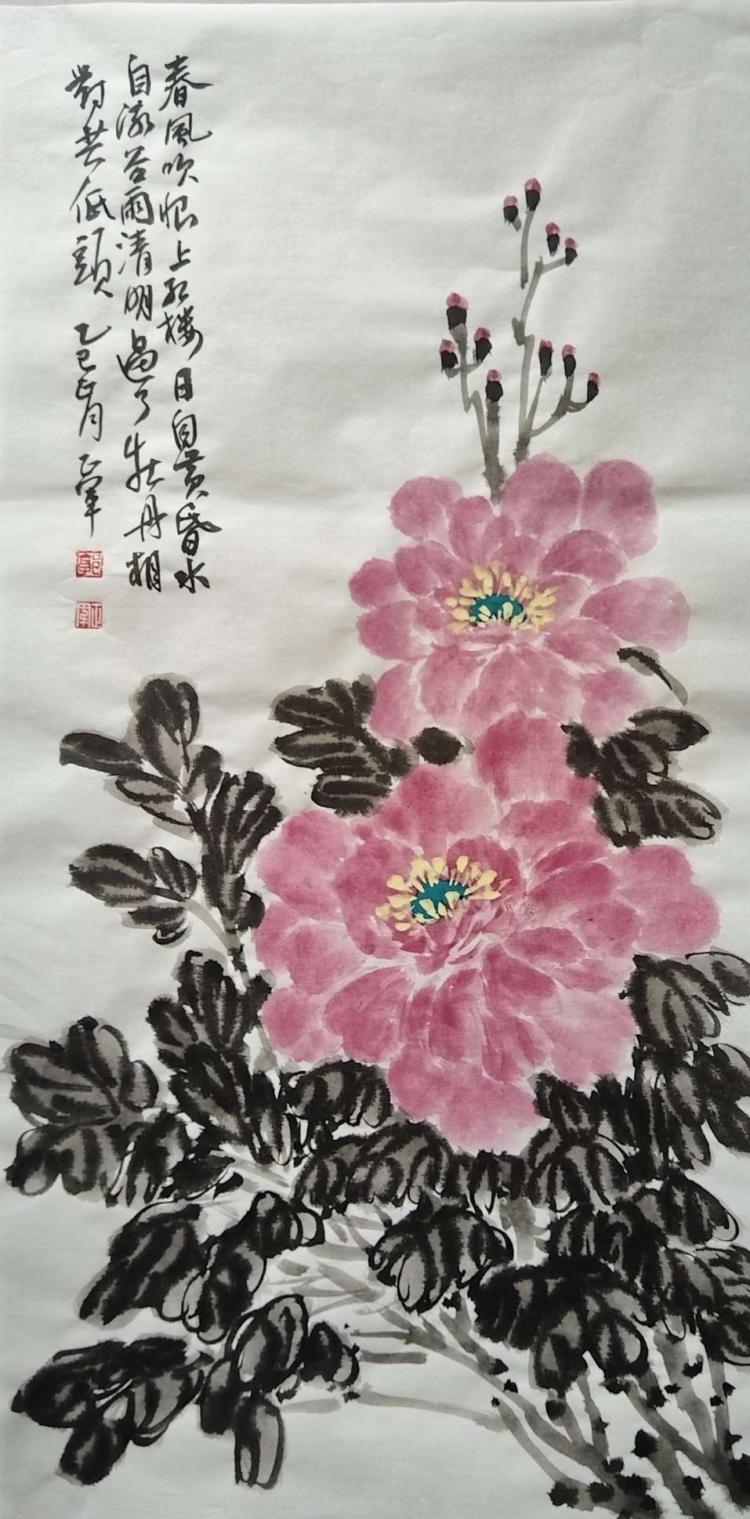 春風吹恨上紅樓日自黃昏水
自流谷雨清明過了牡丹相
對共低頭 乙巳正月 乙軍